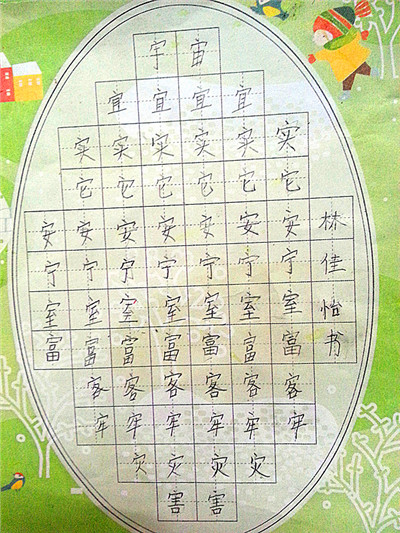 宇宙
宜宜宜宜
实实实实实实
它它它它它它
安安安安安安安
宁宁宁宁宁宁宁
室室室室室室室
富富富富富富富
客客客客客客
牢牢牢牢牢牢
灾灾灾灾
害害
林佳怡书